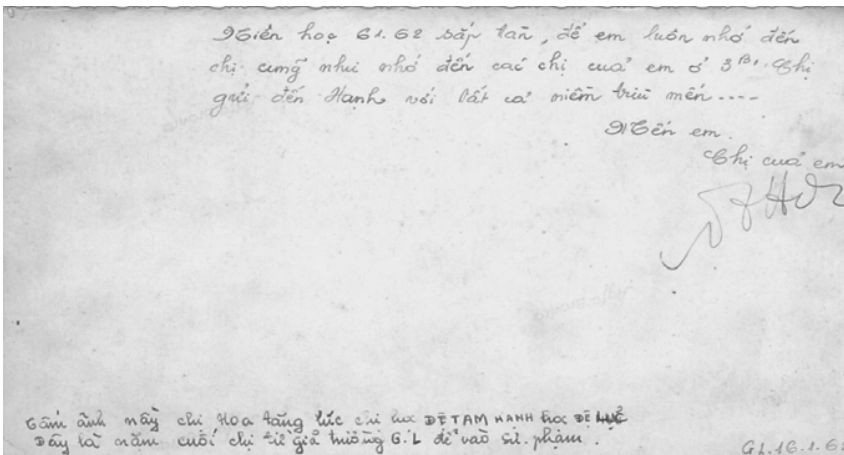 Niên học 61.62 sắp tàn, để em luôn nhớ đến
chị cũng như nhớ đến các chị của em ở 3ᴮ¹. Chị
gửi đến Hạnh với tất cả niềm trìu mến....
Mến em.
Chị của em
Tấm ảnh này chị Hoa tặng lúc chị học ĐỆ TAM HẠNH học ĐỆ LỤC
Đây là năm cuối chị từ giả trường G.L để vào sư phạm.
GL.16.1.62